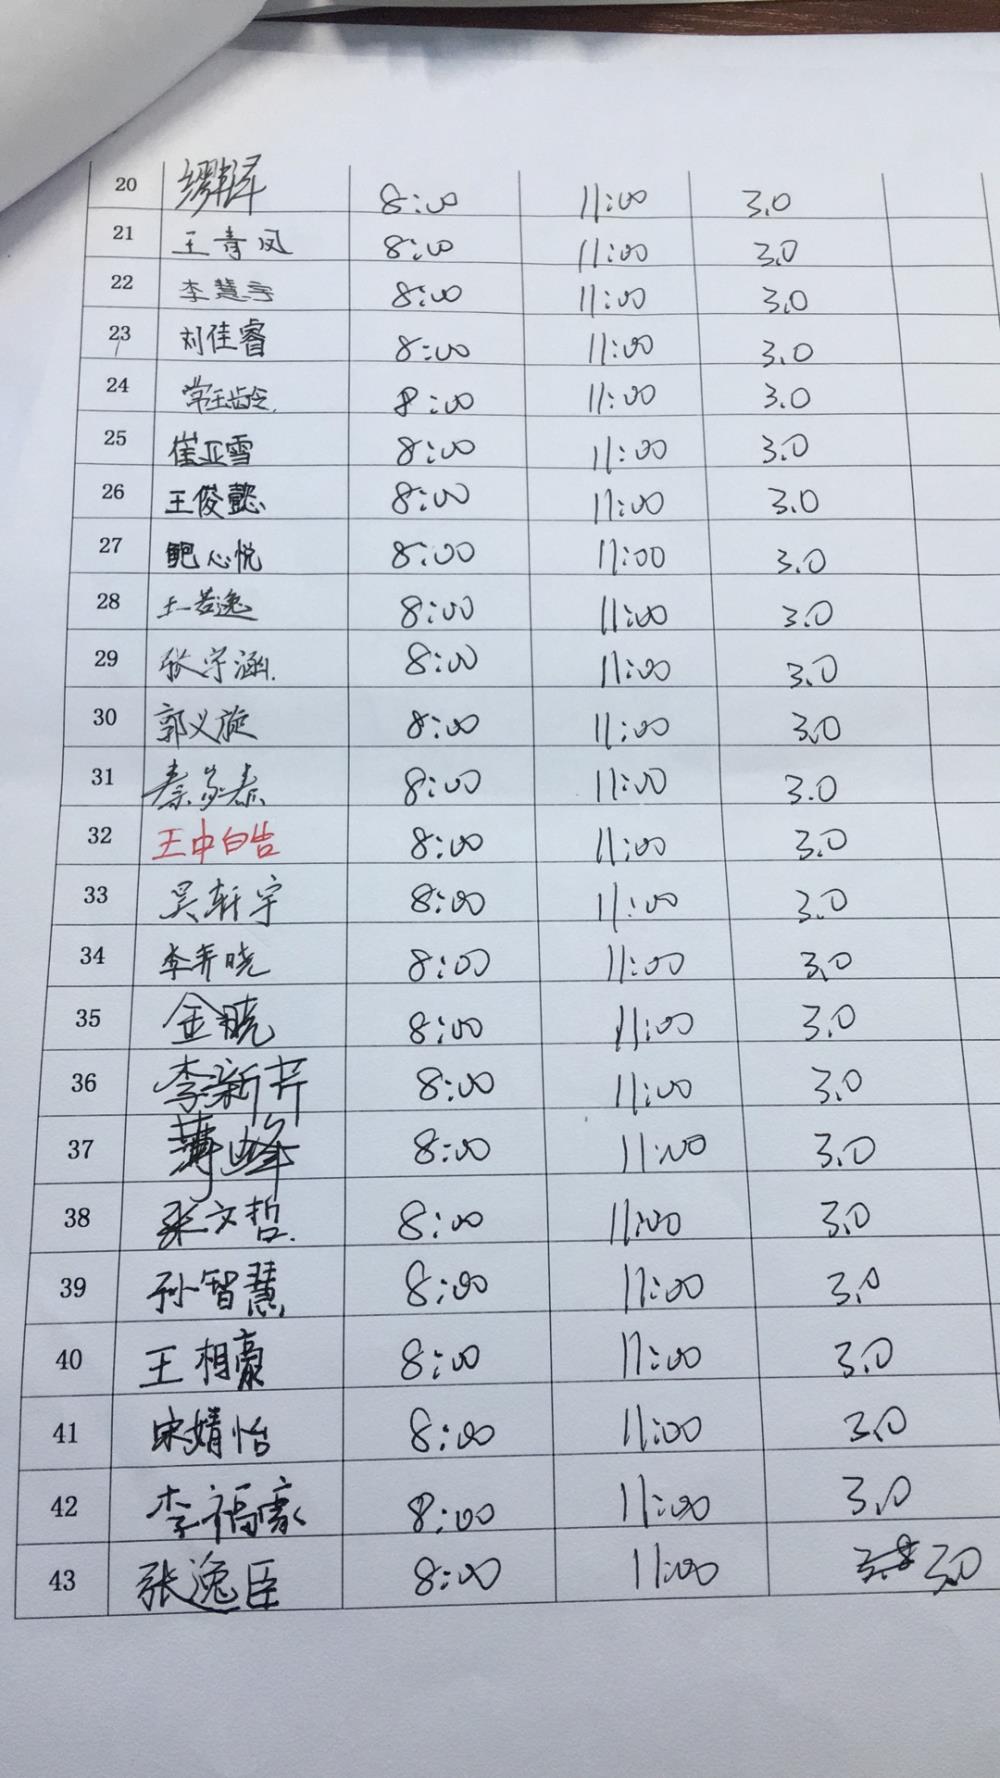 20 8:00 11:00 3.0
21 王青凤 8:00 11:00 3.0
22 李慧宇 8:00 11:00 3.0
23 刘佳睿 8:00 11:00 3.0
24 8:00 11:00 3.0
25 崔亚雪 8:00 11:00 3.0
26 王俊懿 8:00 11:00 3.0
27 鲍心悦 8:00 11:00 3.0
28 王若逸 8:00 11:00 3.0
29 张宇涵 8:00 11:00 3.0
30 郭义旋 8:00 11:00 3.0
31 8:00 11:00 3.0
32 王中皓 8:00 11:00 3.0
33 吴轩宇 8:00 11:00 3.0
34 8:00 11:00 3.0
35 金晓 8:00 11:00 3.0
36 李新芹 8:00 11:00 3.0
37 薄峰 8:00 11:00 3.0
38 张文哲 8:00 11:00 3.0
39 孙智慧 8:00 11:00 3.0
40 王相豪 8:00 11:00 3.0
41 宋婧怡 8:00 11:00 3.0
42 李福豪 8:00 11:00 3.0
43 张逸臣 8:00 11:00 3.0